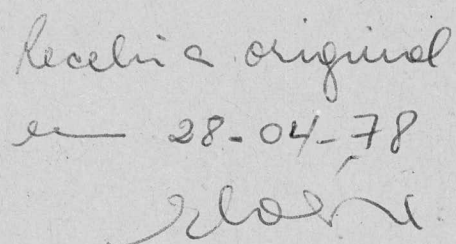 Recebi a original
em 28-04-78